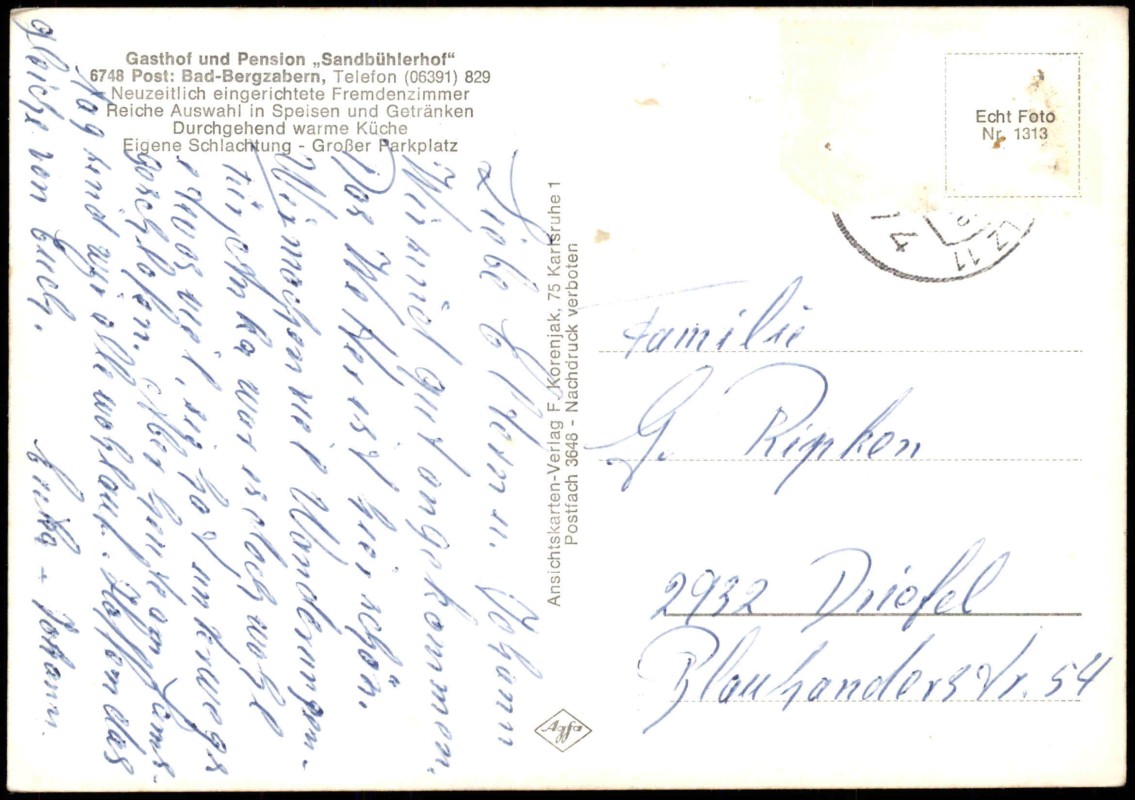 Gasthof und Pension „Sandbühlerhof“
6748 Post: Bad-Bergzabern, Telefon (06391) 829
Neuzeitlich eingerichtete Fremdenzimmer
Reiche Auswahl in Speisen und Getränken
Durchgehend warme Küche
Eigene Schlachtung - Großer Parkplatz
Liebe Eltern u. Johann
Wir sind gut angekommen.
Das Wetter ist hier schön.
Wir machen viel Wanderungen.
für war es doch wohl
etwas viel, sie hat unterwegs
geschlafen. Aber heute am
Tag sind wir alle wohlauf. Hoffen das
gleiche von Euch.
Johann.
Ansichtskarten-Verlag F. Korenjak, 75 Karlsruhe 1
Postfach 3648 - Nachdruck verboten
Echt Foto
Nr. 1313
Familie
G. Ripken
2932 Driefel
Blauhanderstr. 54
Agfa